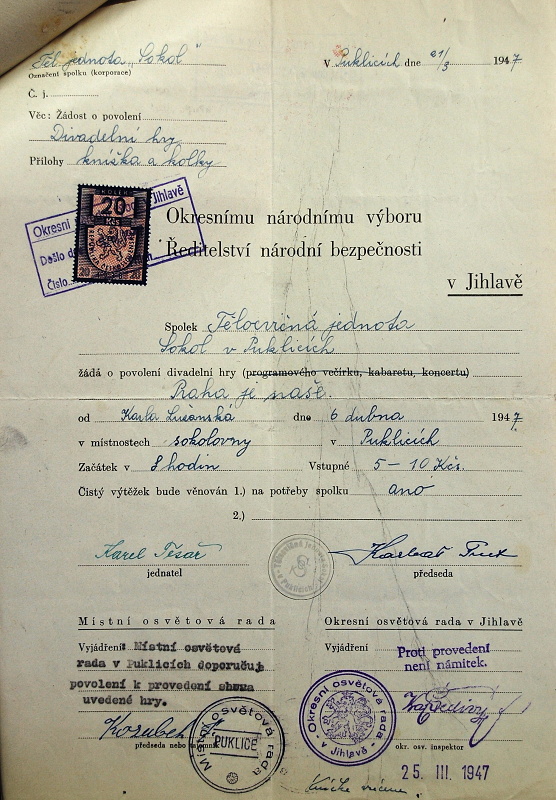 Těl. jednota „Sokol"
V Puklicích dne 21/3 1947
Označení spolku (korporace)
Č. j.
Věc: Žádost o povolení
Divadelní hry
Přílohy knížka a kolky
KOLEK
20
Kčs
20 20
Okresní Jihlavě
Došlo dne
Číslo
Okresnímu národnímu výboru
Ředitelství národní bezpečnosti
v Jihlavě
Spolek Tělocvičná jednota
Sokol v Puklicích
žádá o povolení divadelní hry (programového večírku, kabaretu, koncertu)
Praha je naše.
od Karla dne 6 dubna 1947
v místnostech sokolovny v Puklicích
Začátek v 8 hodin Vstupné 5 – 10 Kčs.
Čistý výtěžek bude věnován 1.) na potřeby spolku ano
2.)
Karel Tesař
jednatel předseda
Místní osvětová rada Okresní osvětová rada v Jihlavě
Vyjádření: Místní osvětová
rada v Puklicích doporučuje
povolení k provedení shora
uvedené hry.
Vyjádření Proti provedení
není námitek.
předseda nebo tajemník
Místní osvětová rada
PUKLICE
Okresní osvětová rada
v Jihlavě
okr. osv. inspektor
25. III. 1947